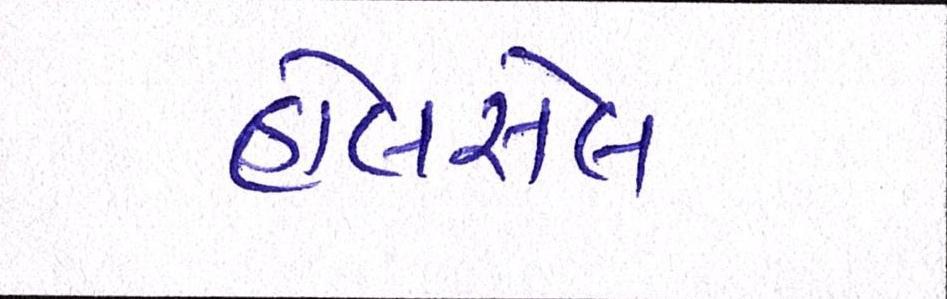 હોલસેલ